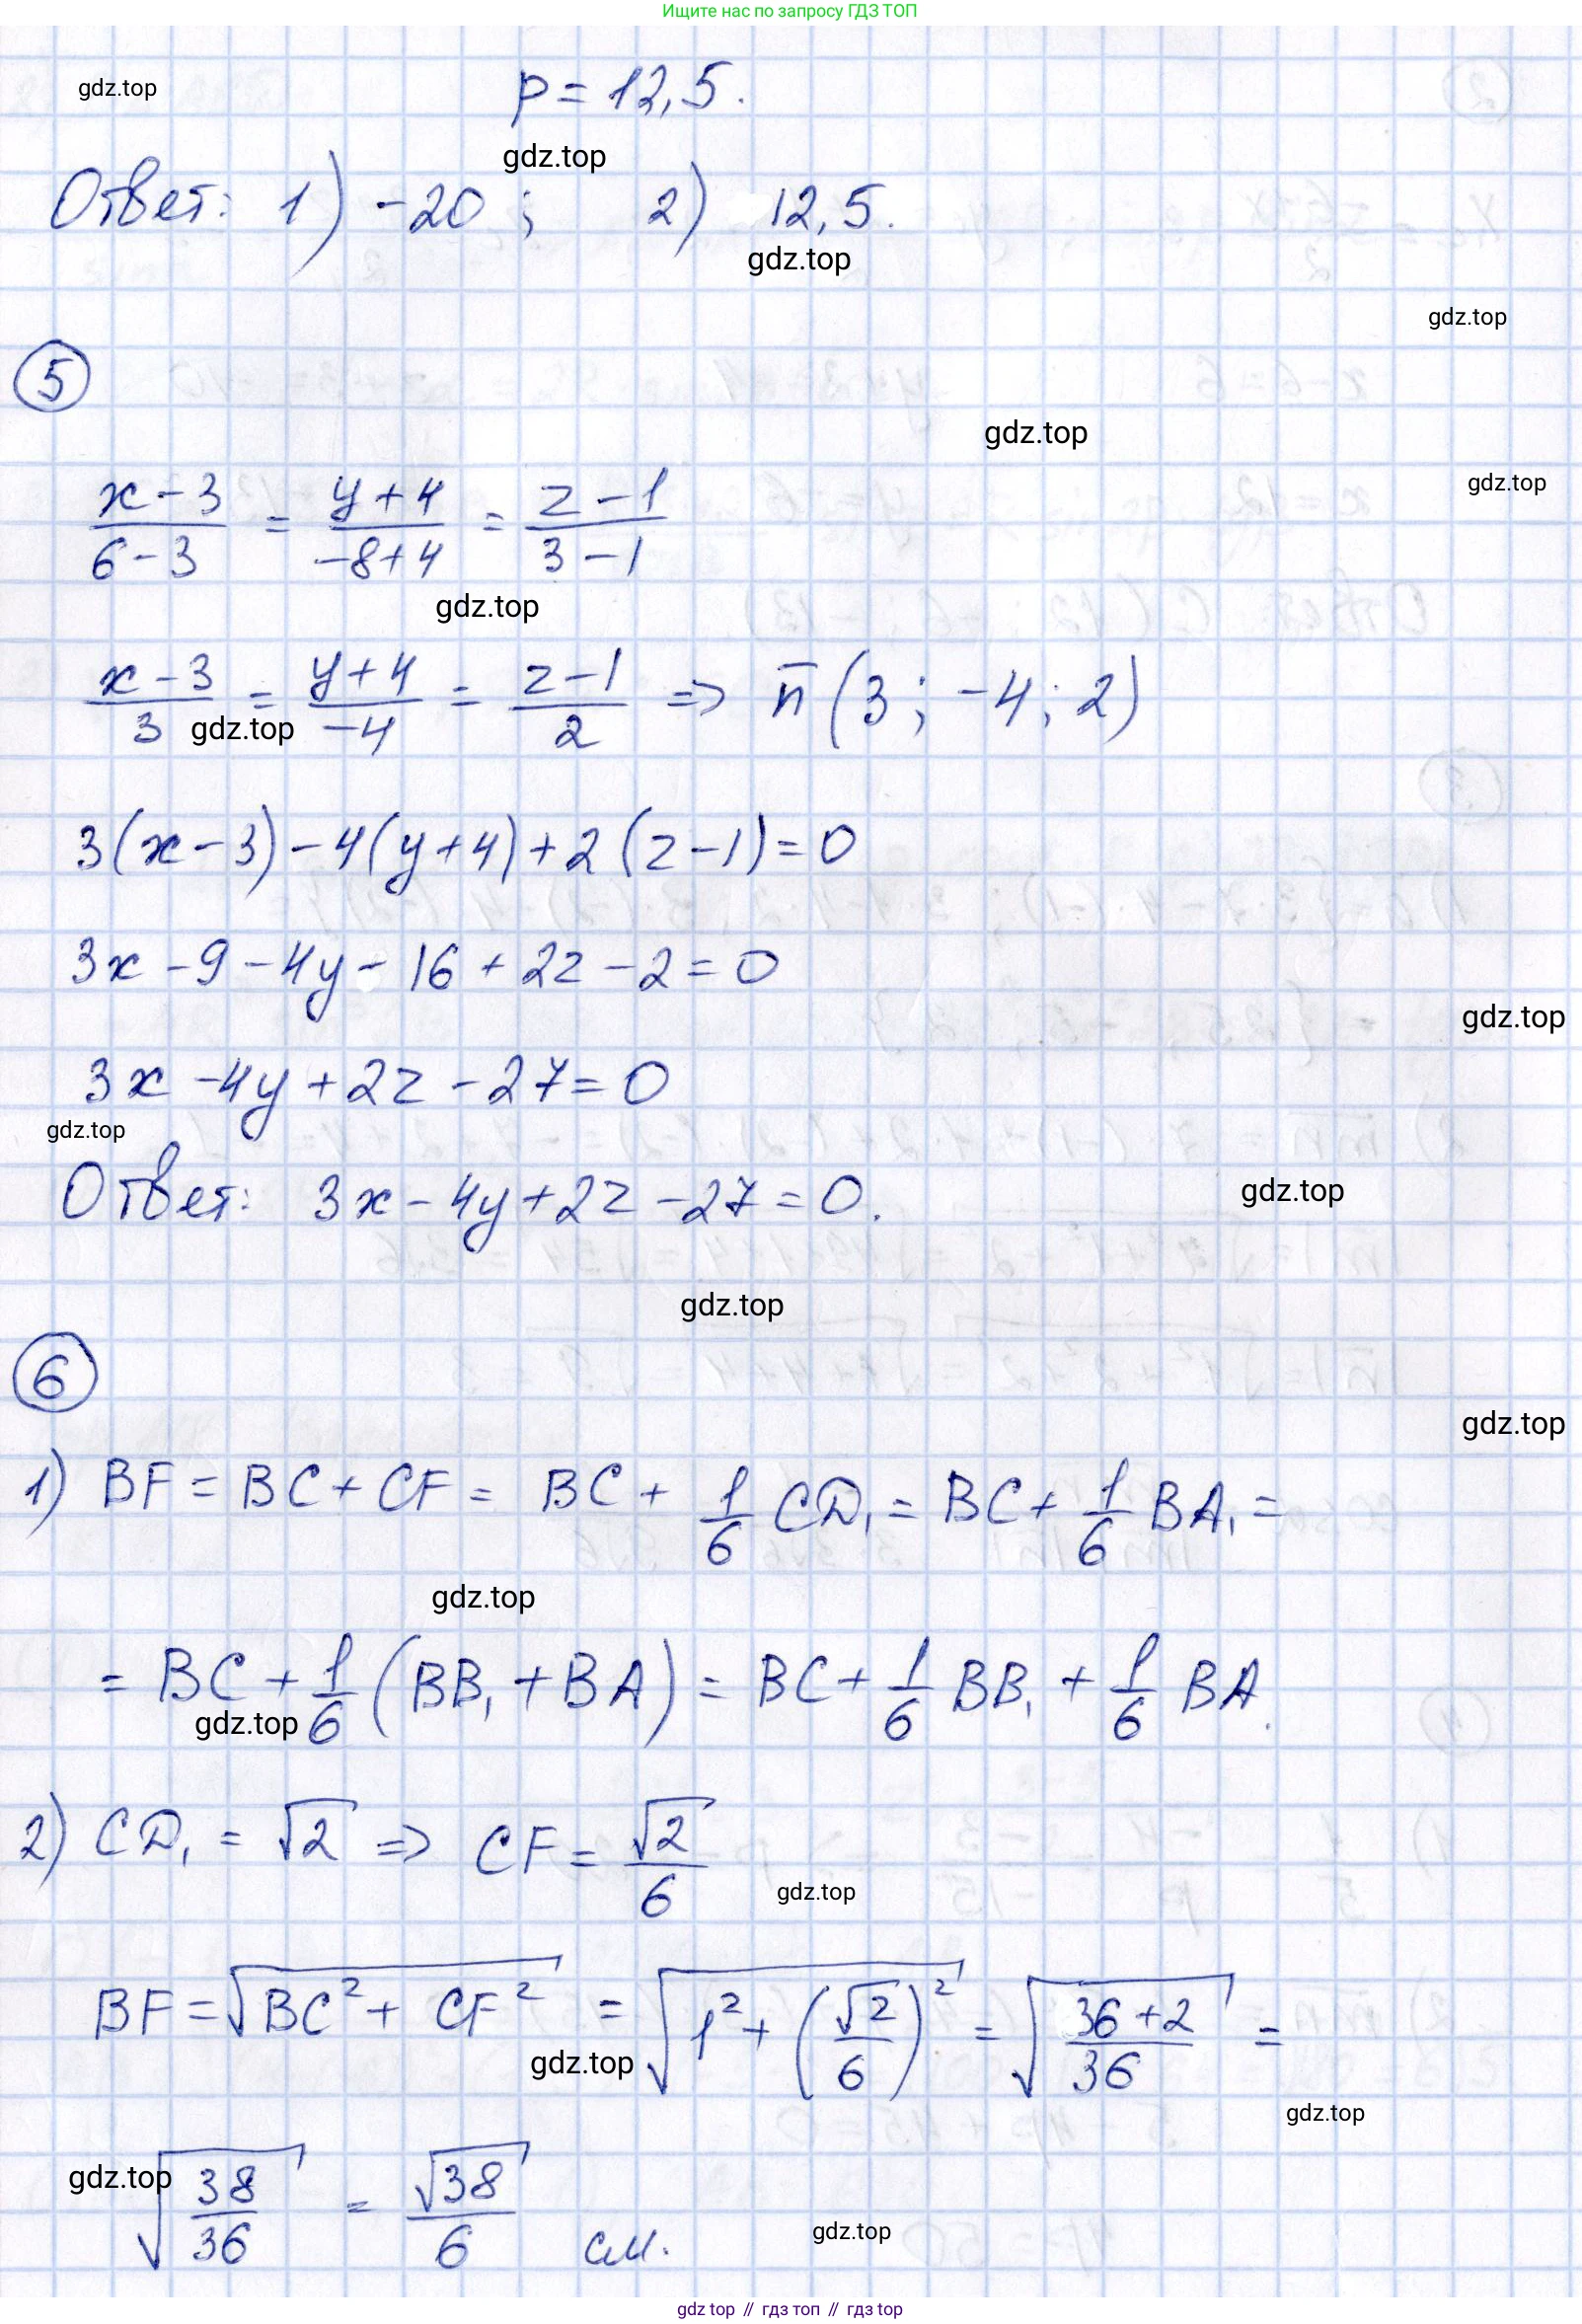 Ищите нас по запросу ГДЗ ТОП
gdz.top
p = 12,5.
gdz.top
Ответ: 1) -20 ; 2) 12,5.
gdz.top
gdz.top
5
gdz.top
(x-3)/(6-3) = (y+4)/(-8+4) = (z-1)/(3-1)
gdz.top
gdz.top
(x-3)/3 = (y+4)/(-4) = (z-1)/2 => n̅ (3 ; -4 ; 2)
gdz.top
3(x-3) - 4(y+4) + 2(z-1) = 0
3x - 9 - 4y - 16 + 2z - 2 = 0
gdz.top
3x - 4y + 2z - 27 = 0
gdz.top
Ответ: 3x - 4y + 2z - 27 = 0.
gdz.top
gdz.top
6
gdz.top
1) BF = BC + CF = BC + 1/6 CD₁ = BC + 1/6 BA₁ =
gdz.top
= BC + 1/6 (BB₁ + BA) = BC + 1/6 BB₁ + 1/6 BA.
gdz.top
2) CD₁ = √2 => CF = √2/6
gdz.top
BF = √(BC² + CF²) = √(1² + (√2/6)²) = √((36+2)/36) =
gdz.top
gdz.top
√(38/36) = √38/6 см.
gdz.top
gdz.top
gdz top // гдз топ // гдз top